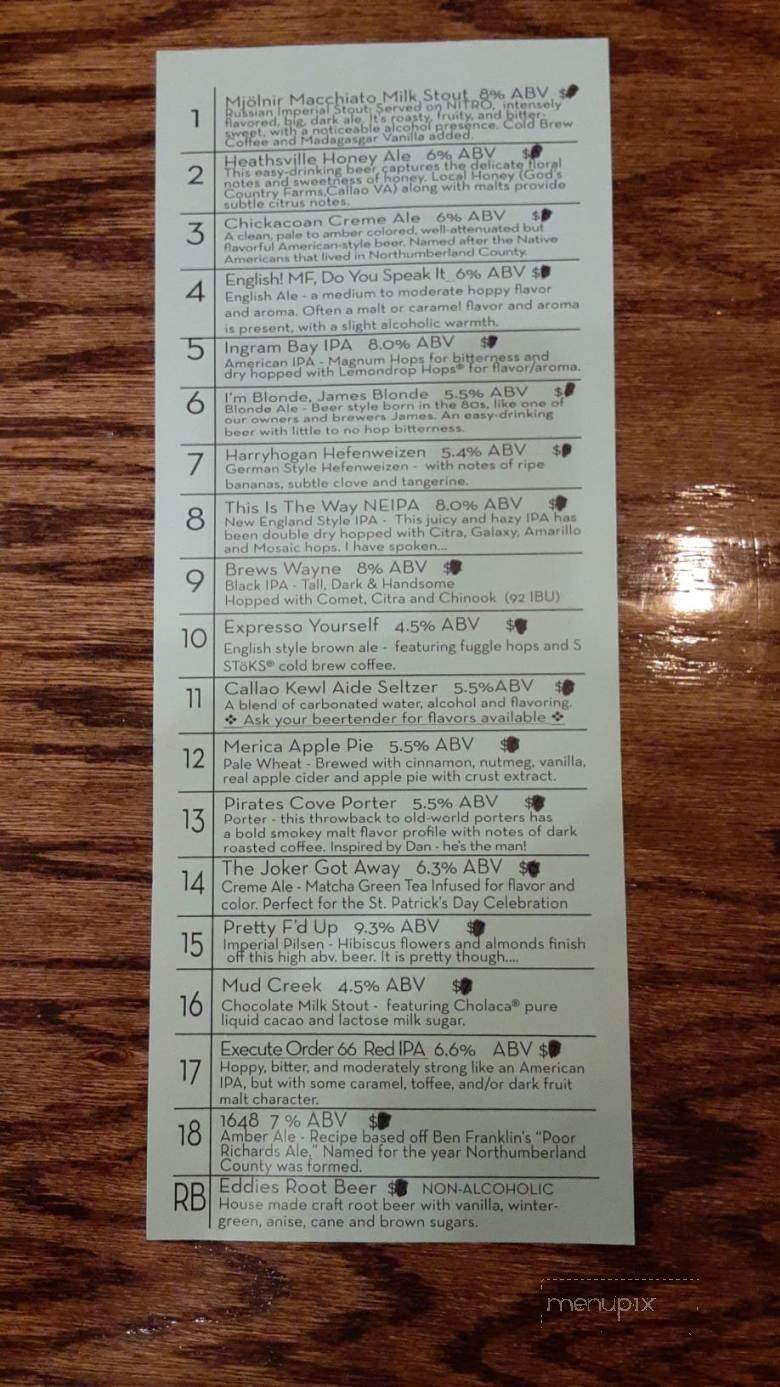 1
Mjölnir Macchiato Milk Stout 8% ABV $
Russian Imperial Stout; Served on NITRO, intensely
flavored, big, dark ale. It's roasty, fruity, and bitter-
sweet, with a noticeable alcohol presence. Cold Brew
Coffee and Madagasgar Vanilla added.
2
Heathsville Honey Ale 6% ABV $
This easy-drinking beer captures the delicate floral
notes and sweetness of honey. Local Honey (God's
Country Farms,Callao VA) along with malts provide
subtle citrus notes.
3
Chickacoan Creme Ale 6% ABV $
A clean, pale to amber colored, well-attenuated but
flavorful American-style beer. Named after the Native
Americans that lived in Northumberland County.
4
English! MF, Do You Speak It 6% ABV $
English Ale - a medium to moderate hoppy flavor
and aroma. Often a malt or caramel flavor and aroma
is present, with a slight alcoholic warmth.
5
Ingram Bay IPA 8.0% ABV $
American IPA - Magnum Hops for bitterness and
dry hopped with Lemondrop Hops® for flavor/aroma.
6
I'm Blonde, James Blonde 5.5% ABV $
Blonde Ale - Beer style born in the 80s, like one of
our owners and brewers James. An easy-drinking
beer with little to no hop bitterness.
7
Harryhogan Hefenweizen 5.4% ABV $
German Style Hefenweizen - with notes of ripe
bananas, subtle clove and tangerine.
8
This Is The Way NEIPA 8.0% ABV $
New England Style IPA - This juicy and hazy IPA has
been double dry hopped with Citra, Galaxy, Amarillo
and Mosaic hops. I have spoken...
9
Brews Wayne 8% ABV $
Black IPA - Tall, Dark & Handsome
Hopped with Comet, Citra and Chinook (92 IBU)
10
Expresso Yourself 4.5% ABV $
English style brown ale - featuring fuggle hops and S
STōKS® cold brew coffee.
11
Callao Kewl Aide Seltzer 5.5%ABV $
A blend of carbonated water, alcohol and flavoring.
❖ Ask your beertender for flavors available ❖
12
Merica Apple Pie 5.5% ABV $
Pale Wheat - Brewed with cinnamon, nutmeg, vanilla,
real apple cider and apple pie with crust extract.
13
Pirates Cove Porter 5.5% ABV $
Porter - this throwback to old-world porters has
a bold smokey malt flavor profile with notes of dark
roasted coffee. Inspired by Dan - he's the man!
14
The Joker Got Away 6.3% ABV $
Creme Ale - Matcha Green Tea Infused for flavor and
color. Perfect for the St. Patrick's Day Celebration
15
Pretty F'd Up 9.3% ABV $
Imperial Pilsen - Hibiscus flowers and almonds finish
off this high abv. beer. It is pretty though....
16
Mud Creek 4.5% ABV $
Chocolate Milk Stout - featuring Cholaca® pure
liquid cacao and lactose milk sugar.
17
Execute Order 66 Red IPA 6.6% ABV $
Hoppy, bitter, and moderately strong like an American
IPA, but with some caramel, toffee, and/or dark fruit
malt character.
18
1648 7 % ABV $
Amber Ale - Recipe based off Ben Franklin's "Poor
Richards Ale." Named for the year Northumberland
County was formed.
RB
Eddies Root Beer $ NON-ALCOHOLIC
House made craft root beer with vanilla, winter-
green, anise, cane and brown sugars.
menupix